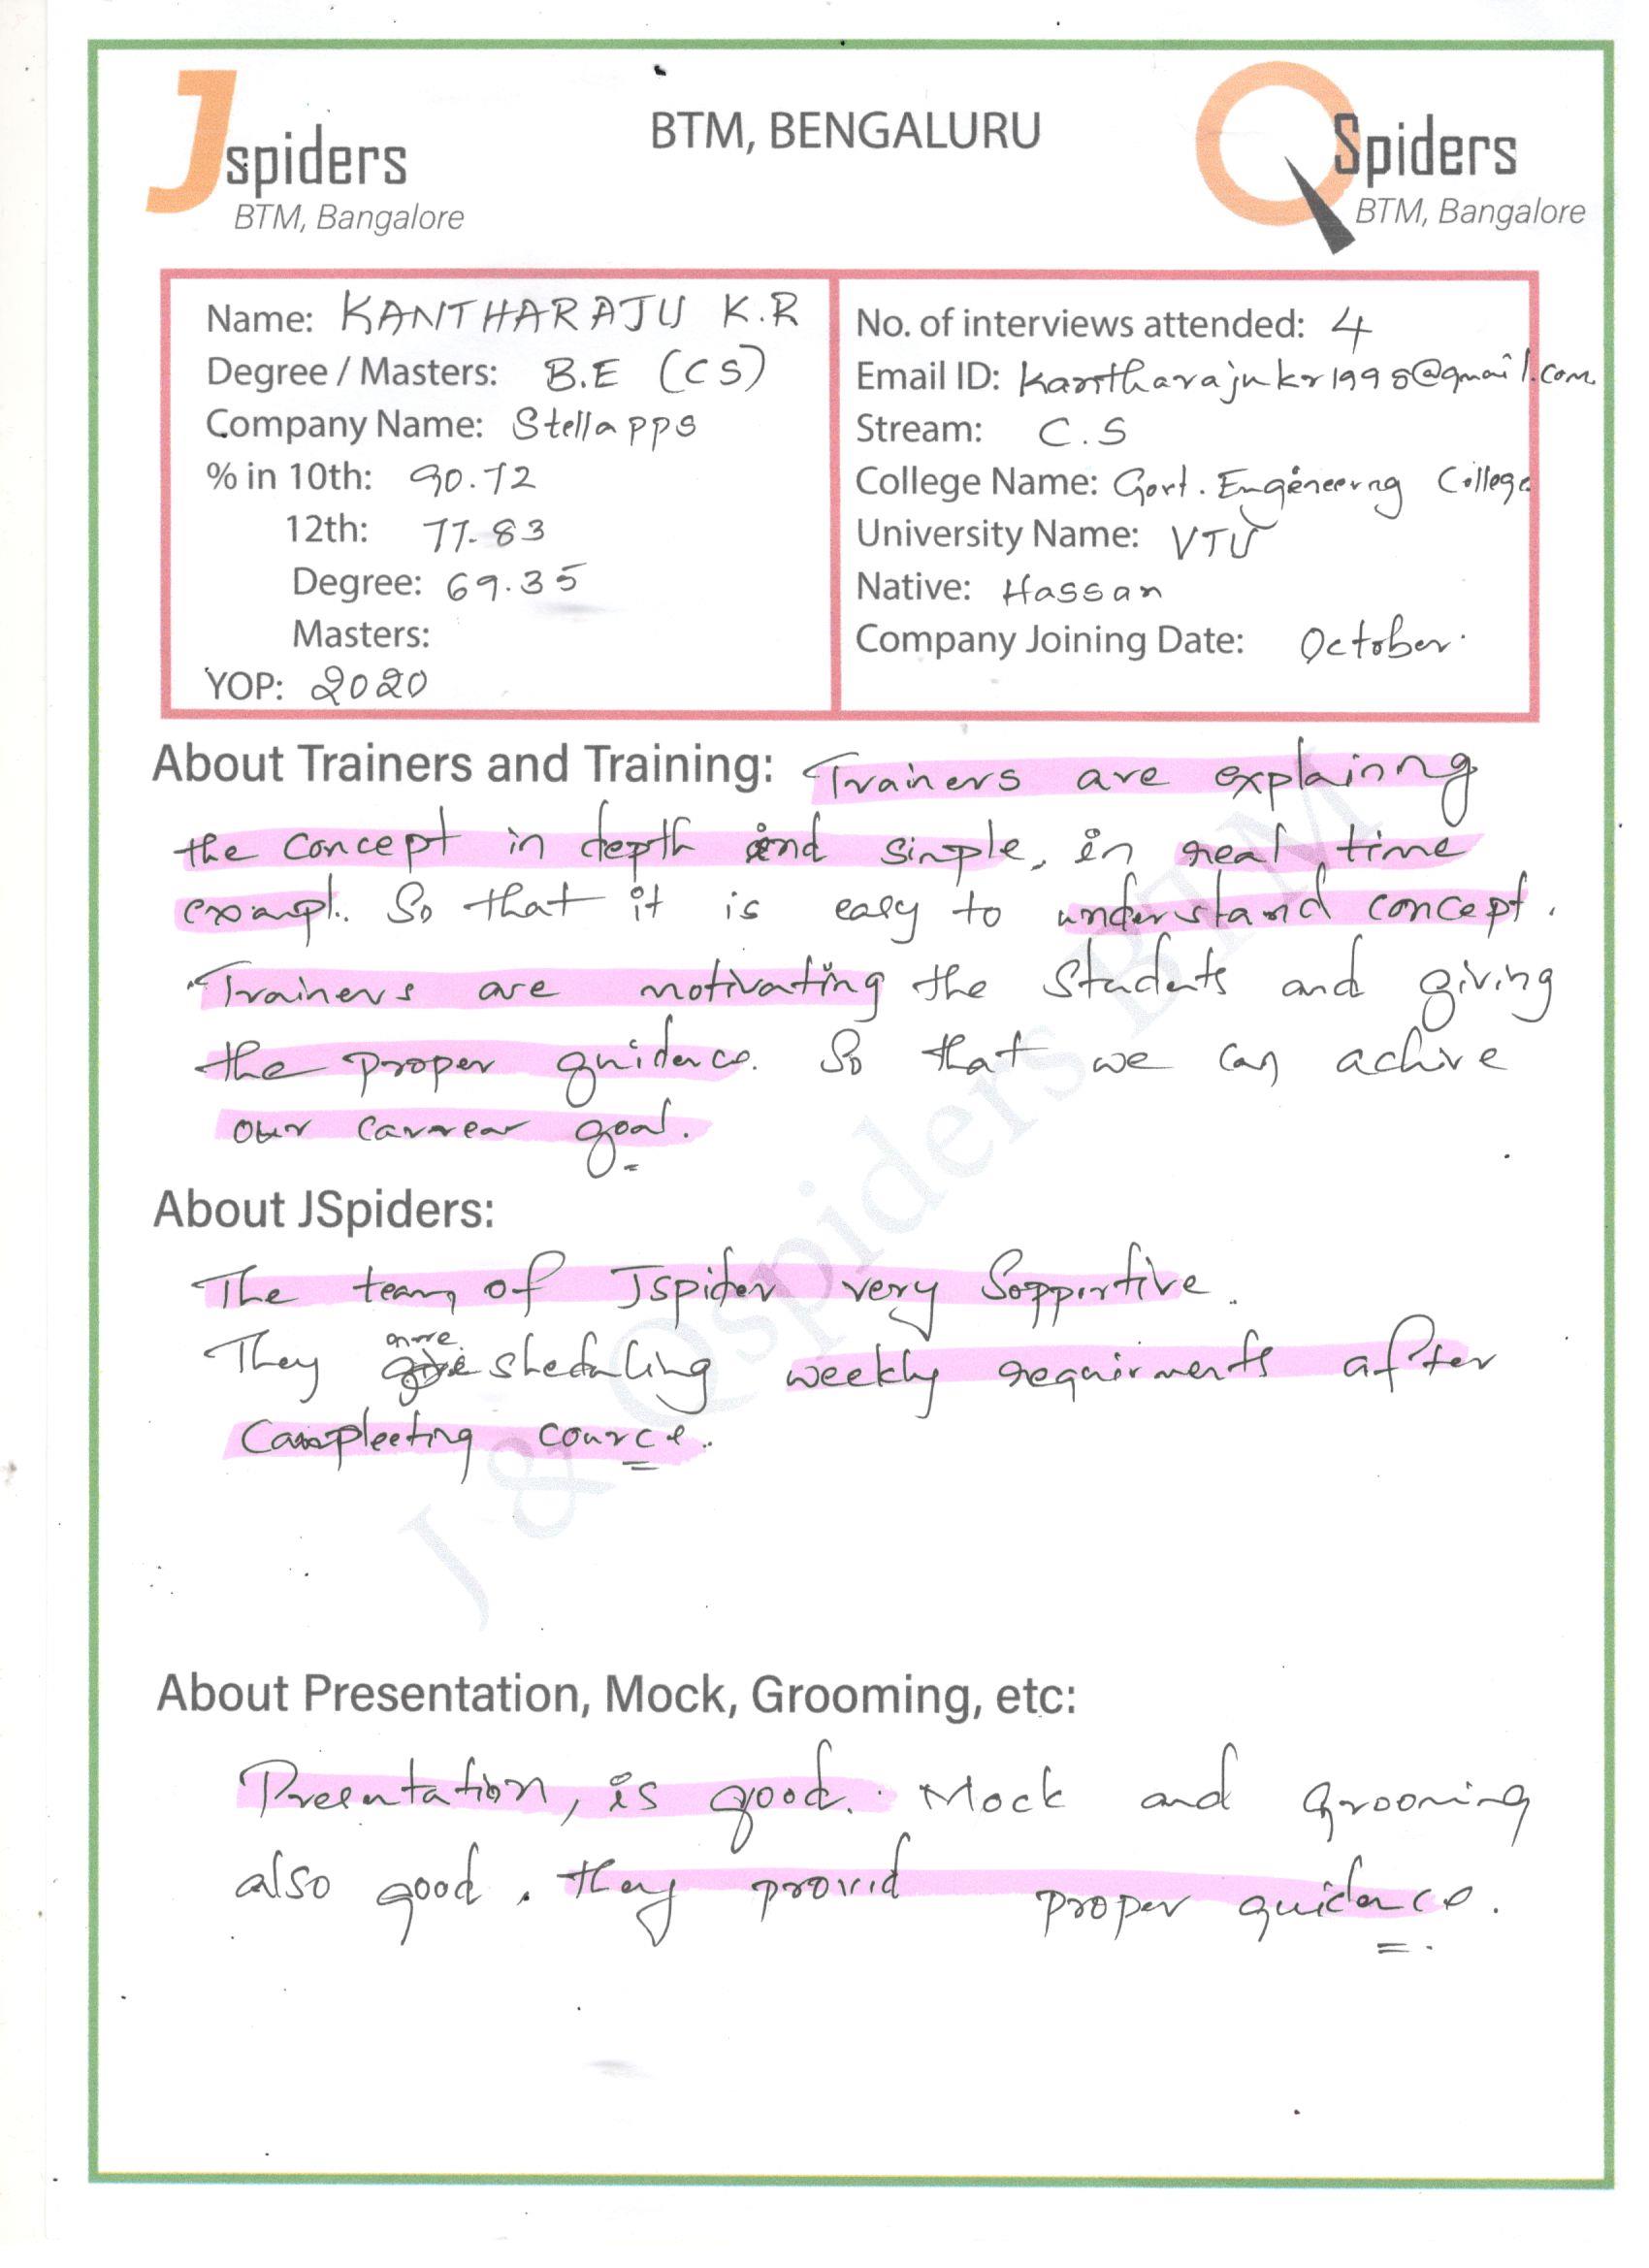 Jspiders
BTM, Bangalore
BTM, BENGALURU
QSpiders
BTM, Bangalore
Name: KANTHARAJU K.R
Degree / Masters: B.E (CS)
Company Name: Stellapps
% in 10th: 90.72
12th: 77.83
Degree: 69.35
Masters:
YOP: 2020
No. of interviews attended: 4
Email ID: kantharajukr1998@gmail.com
Stream: C.S
College Name: Govt. Engineerng College
University Name: VTU
Native: Hassan
Company Joining Date: October.
About Trainers and Training: Trainers are explainng
the concept in depth and simple, in real time
exampl. So that it is easy to understand concept.
Trainers are motivating the students and giving
the proper guidence. So that we can achive
our carrear goal.
About JSpiders:
The team of Jspider very Sopportive.
They are sheduling weekly requirments after
Campleeting cource.
About Presentation, Mock, Grooming, etc:
Preentation, is good. Mock and grooming
also good. they provid proper guidence.
J & Qspiders BTM